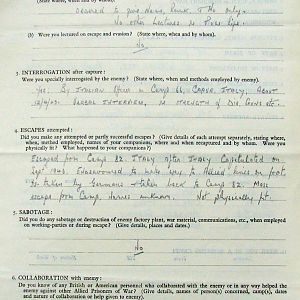 (State where, when and by whom).
Ordered to give Name, Rank, & No only.
No other Lectures in
(b) Were you lectured on escape and evasion? (State where, when and by whom).
No.
3. INTERROGATION after capture:
Were you specially interrogated by the enemy? (State where, when and methods employed by enemy).
Yes. By Italian Officer in Camp 66, Capua Italy, about
12/4/43. Verbal Interview, strength of Div, Guns etc.
4. ESCAPES attempted:
Did you make any attempted or partly successful escapes? (Give details of each attempt separately, stating where,
when, method employed, names of your companions, where and when recaptured and by whom. Were you
physically fit? What happened to your companions?)
Escaped from Camp 82. Italy after Italy Capitulated on
Sept 1943. Endeavoured to make way to Allied lines on foot.
Re-taken by Germans & taken back to Camp 82. Mass
escape from Camp names unknown. Not physically fit.
5. SABOTAGE:
Did you do any sabotage or destruction of enemy factory plant, war material, communications, etc., when employed
on working-parties or during escape? (Give details, places and dates.)
No
6. COLLABORATION with enemy:
Do you know of any British or American personnel who collaborated with the enemy or in any way helped the
enemy against other Allied Prisoners of War? (Give details, names of person(s) concerned, camp(s), dates
and nature of collaboration or help given to enemy).